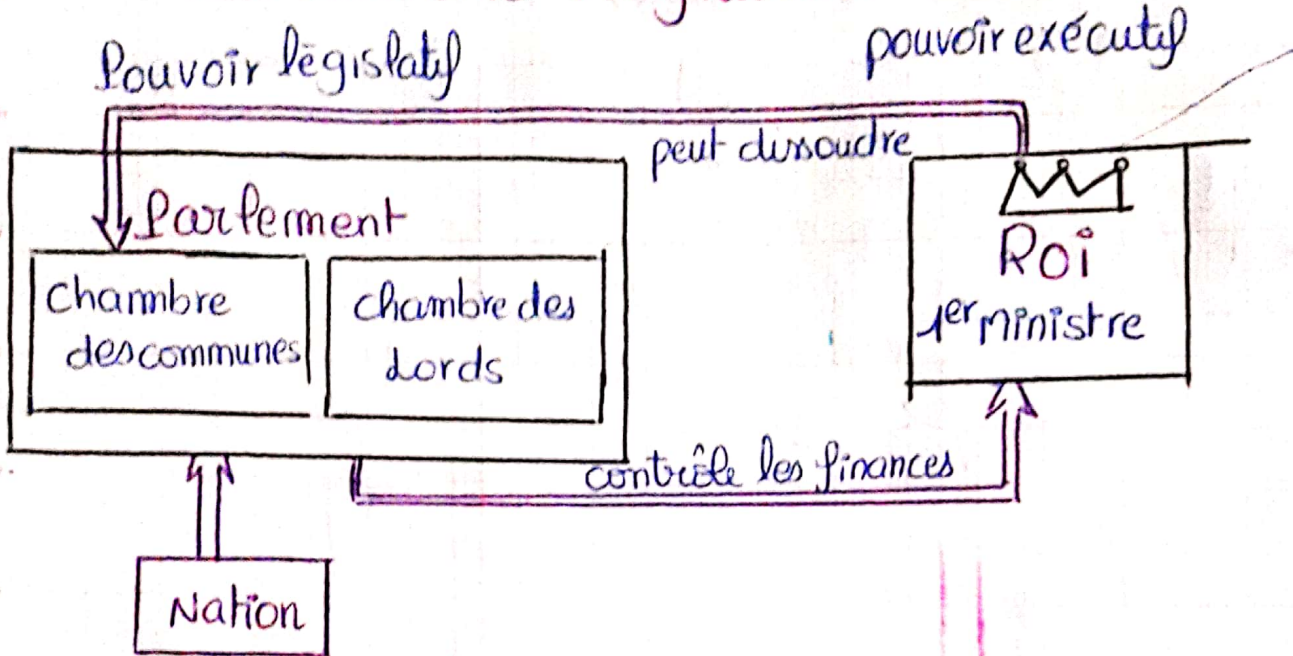 Pouvoir législatif
pouvoir exécutif
peut dissoudre
Parlement
Chambre
des communes
Chambre des
Lords
Roi
1er ministre
contrôle les finances
Nation